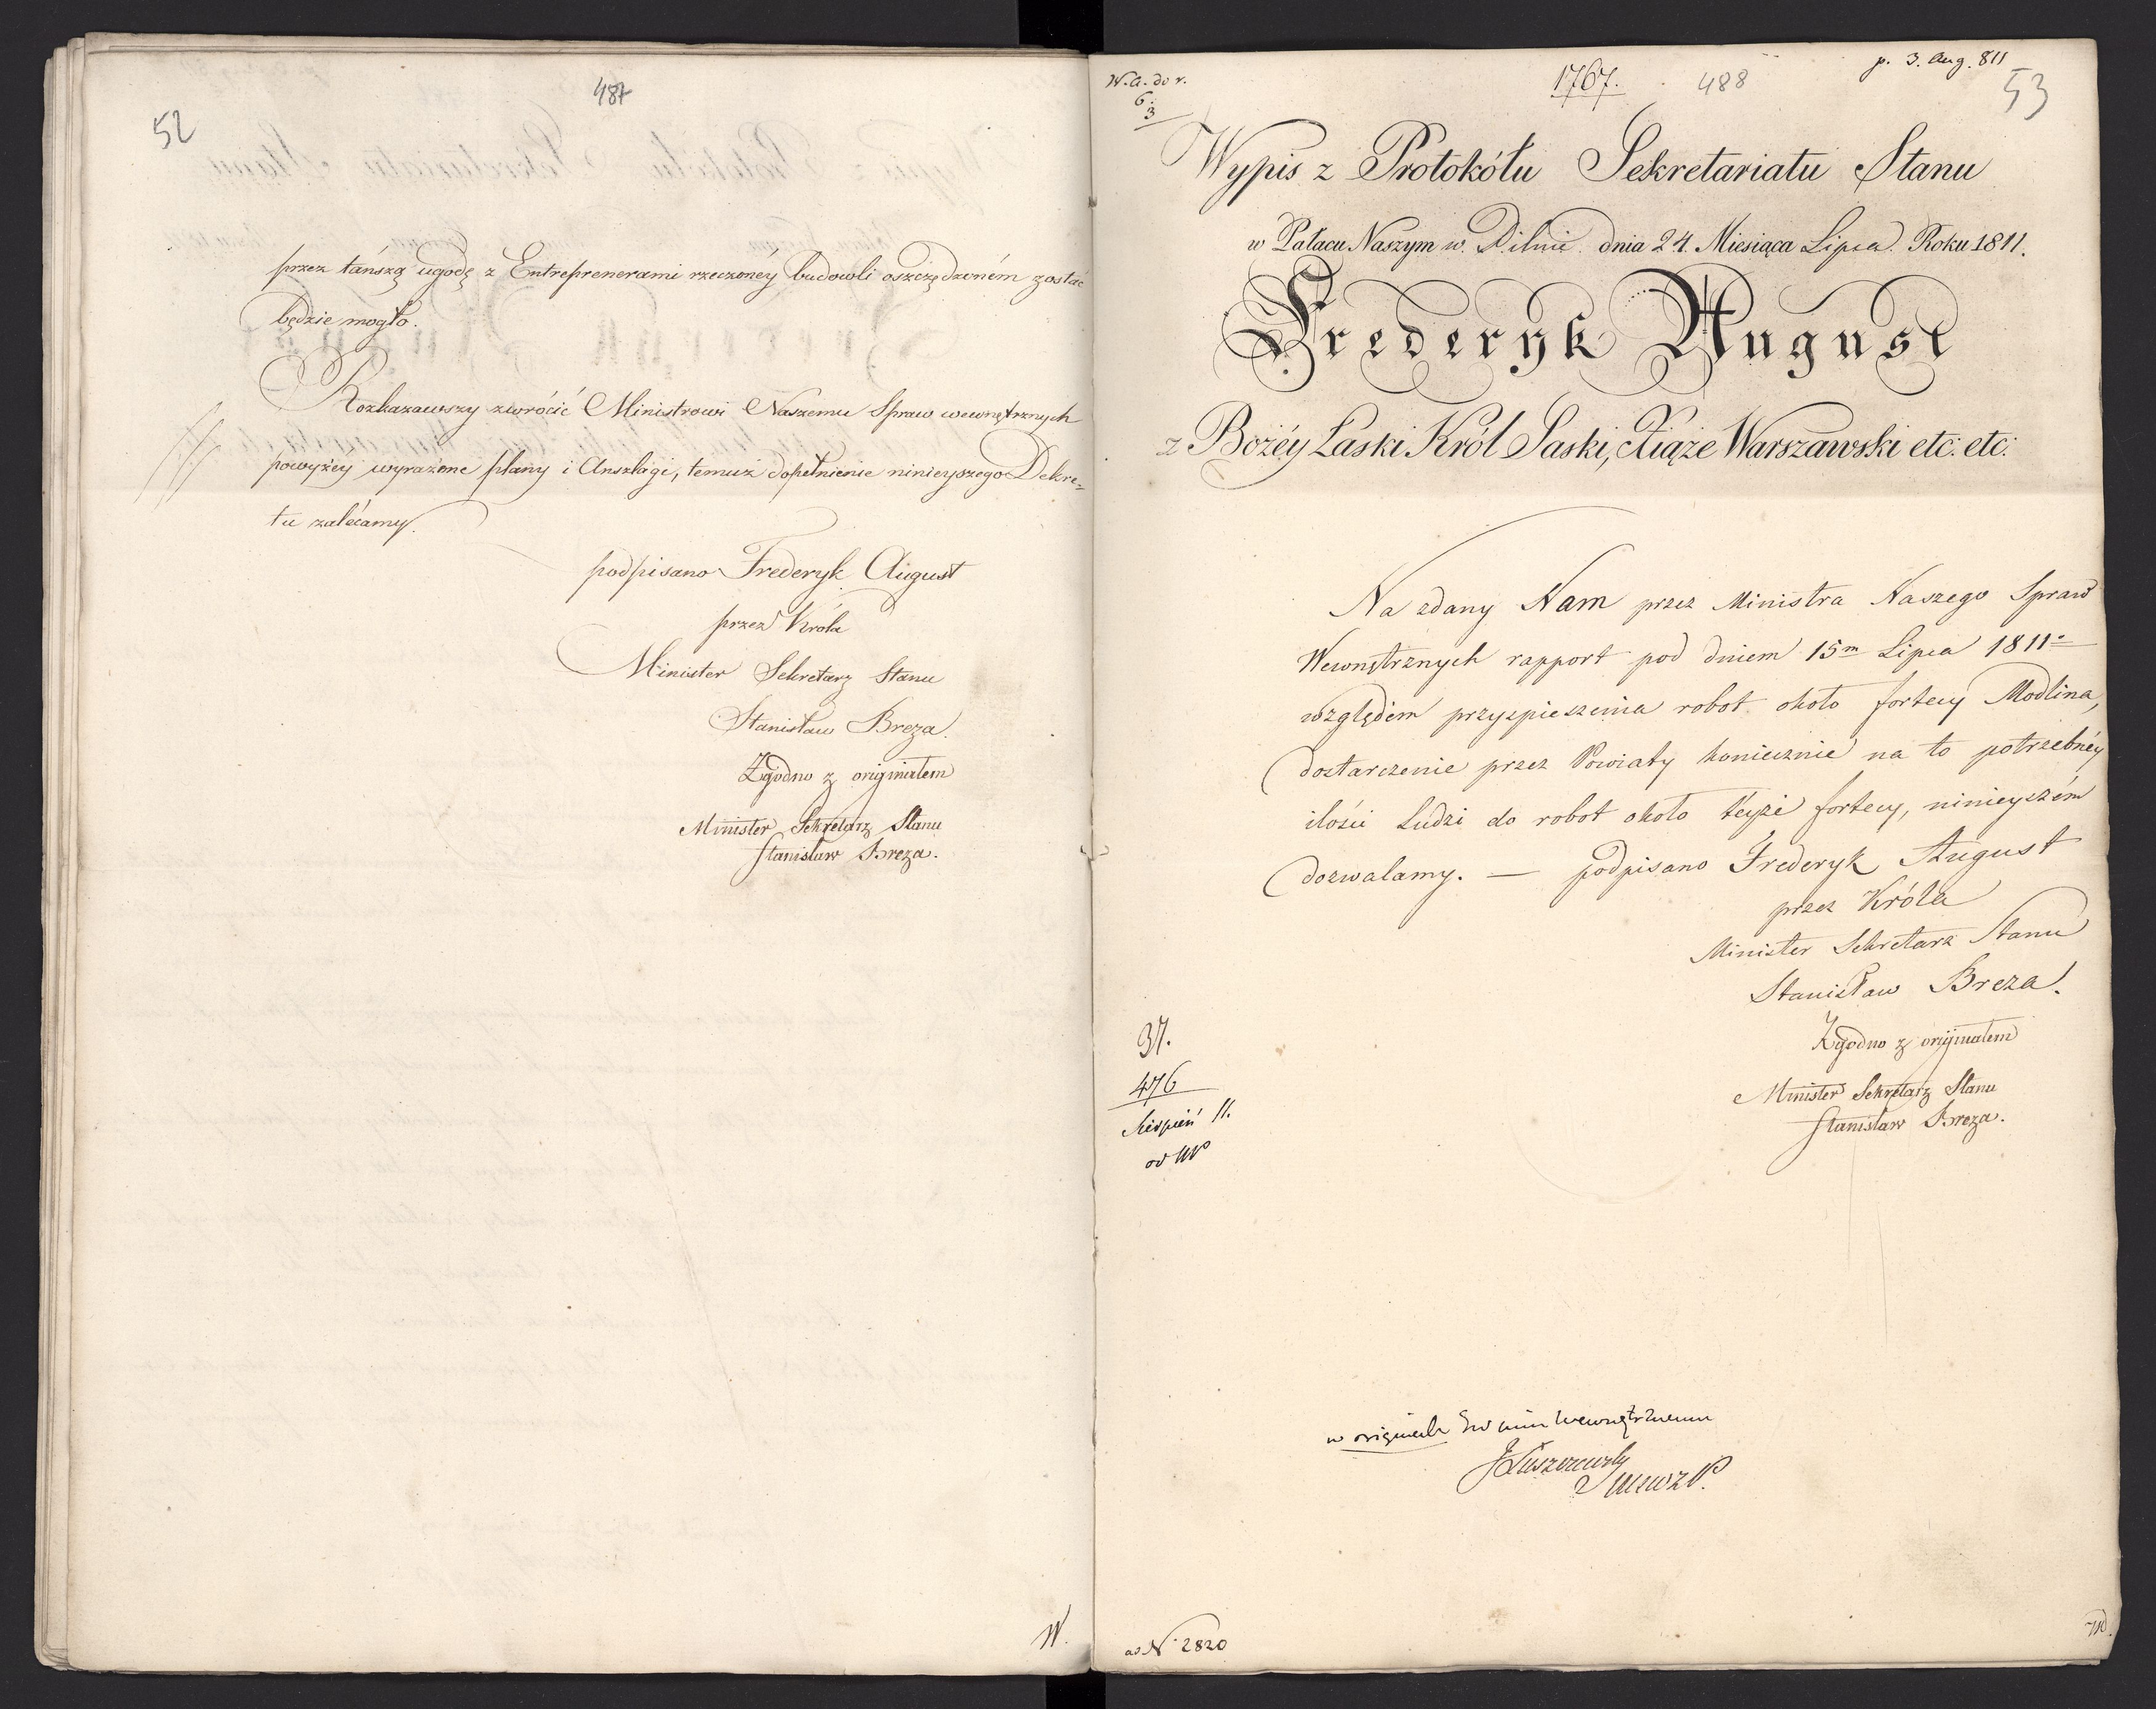 487
52
przez tańszą ugodę z Entreprenerami rzeczonéy budowli oszczędzoném zostać
będzie mogło.
Rozkazawszy zwrócić Ministrowi Naszemu Spraw wewnętrznych
powyżey wyrażone plany i Anszlagi, temuż dopełnienie ninieyszego Dekre-
tu zalécamy.
podpisano Frederyk August
przez Króla
Minister Sekretarz Stanu
Stanisław Breza.
Zgodno z originałem
Minister Sekretarz Stanu
Stanisław Breza.
W.
W.a. do r.
6.
3
1767.
488
p. 3. Aug. 811
53
Wypis z Protokółu Sekretariatu Stanu
w Pałacu Naszym w Pilnie dnia 24. Miesiąca Lipca Roku 1811.
Frederyk August
z Bożéy Łaski Król Saski, Xiąże Warszawski etc: etc:
Na zdany Nam przez Ministra Naszego Spraw
Wewnętrznych rapport pod dniem 15m Lipca 1811.
względem przyspieszenia robot około fortecy Modlina,
dostarczenie przez Powiaty koniecznie na to potrzebnéy
ilości Ludzi do robot około teyże fortecy, ninieyszém
dozwalamy. — podpisano Frederyk August
przez Króla
Minister Sekretarz Stanu
Stanisław Breza.
Zgodno z originałem
Minister Sekretarz Stanu
Stanisław Breza.
37.
476
Sierpień 11.
od
w originale
JŁuszczewski
ad N. 2820